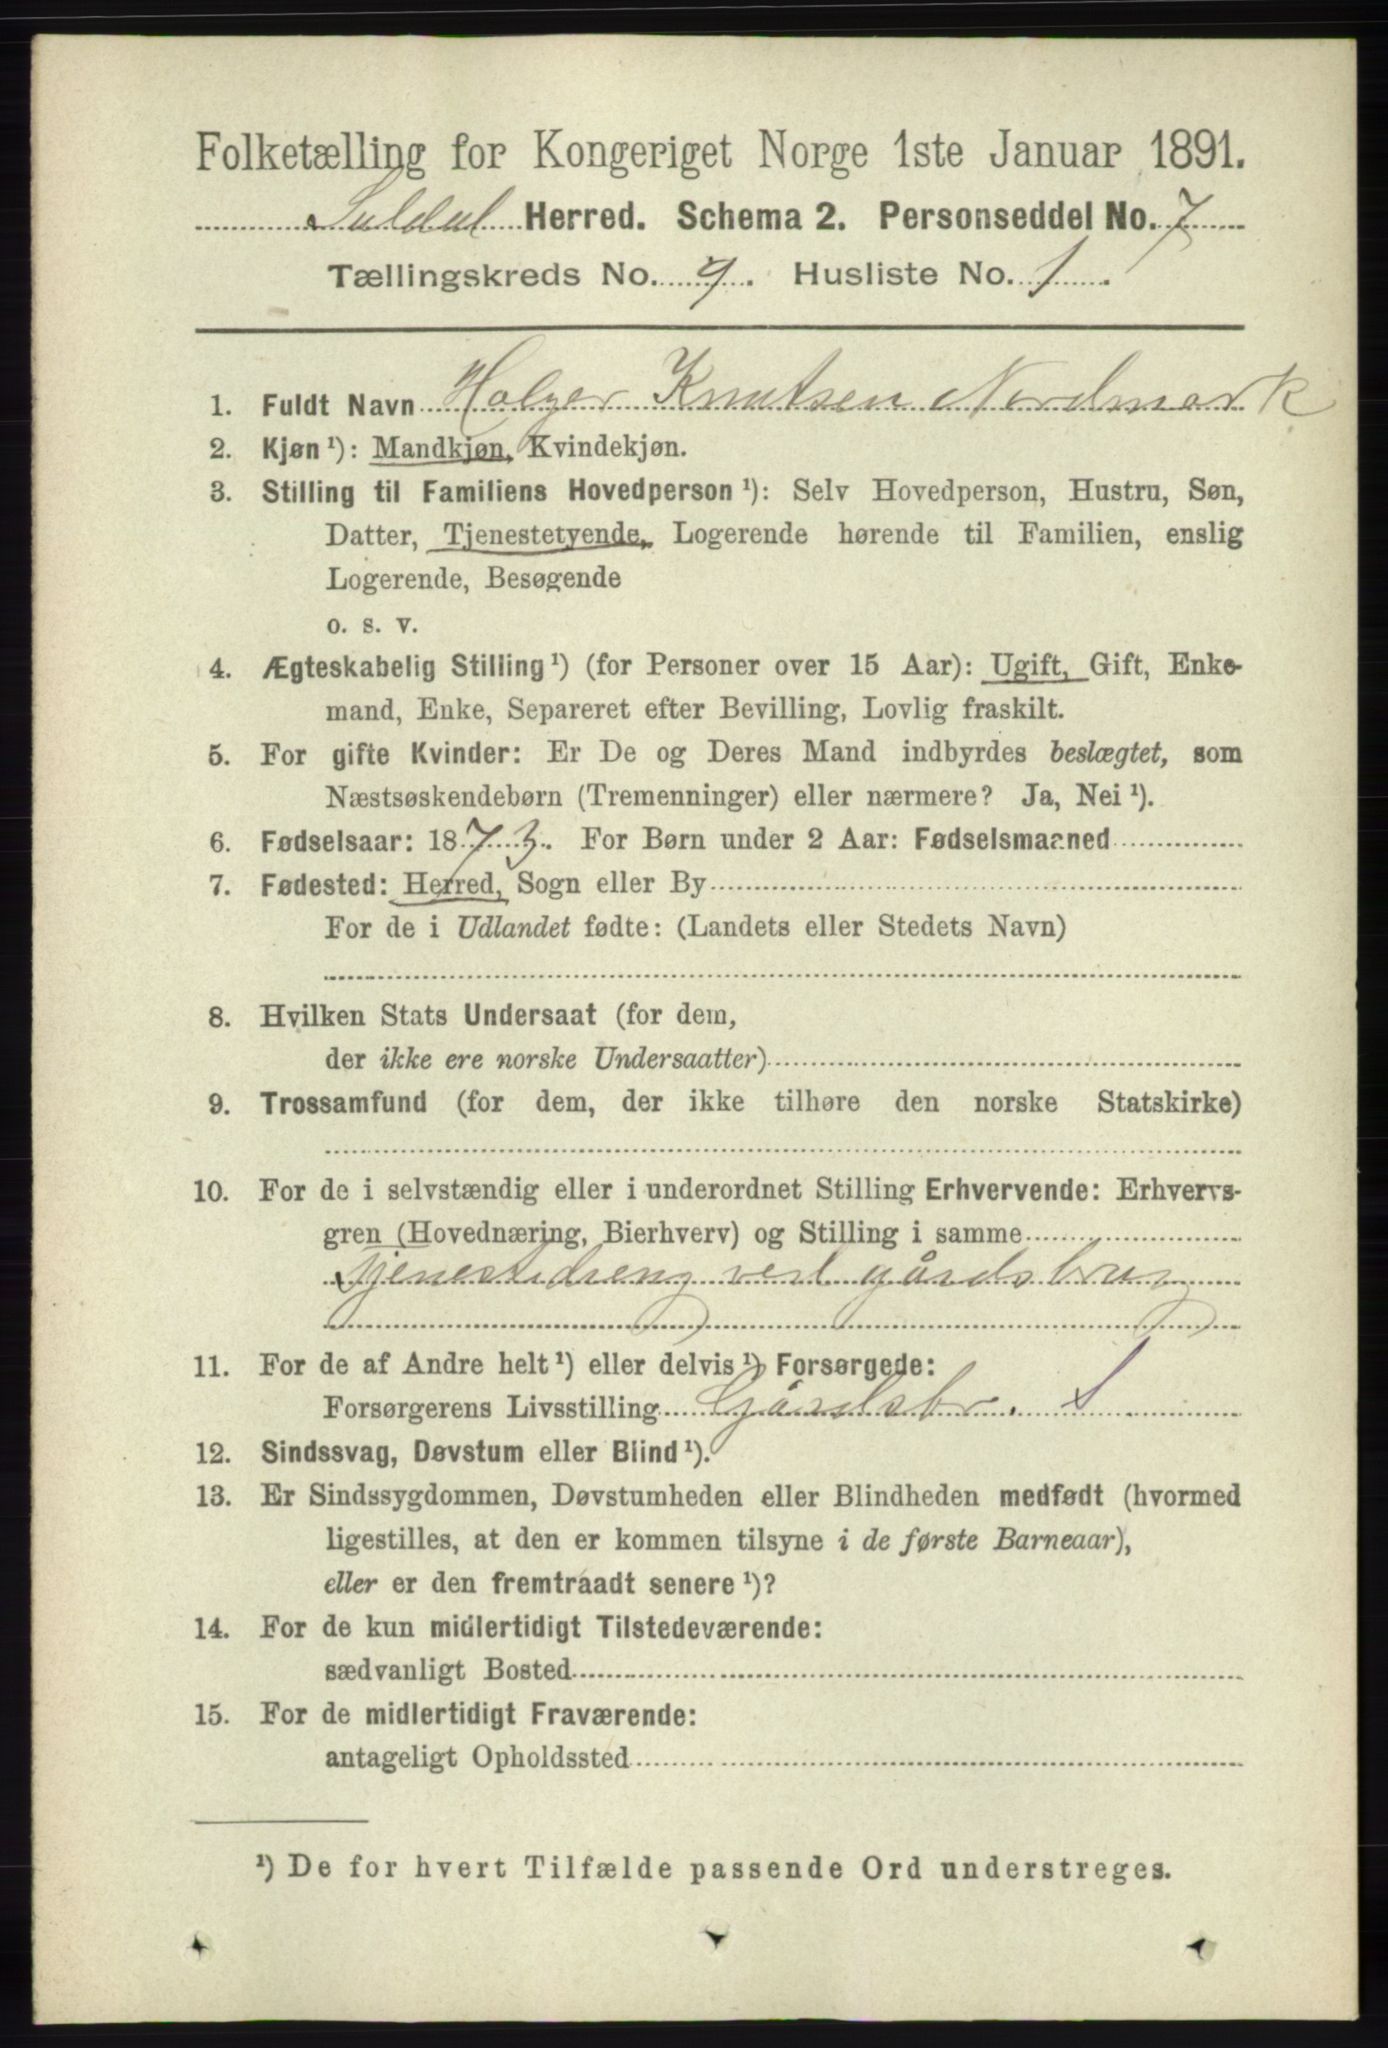 Folketælling for Kongeriget Norge 1ste Januar 1891.
Suldal Herred. Schema 2. Personseddel No. 7
Tællingskreds No. 9. Husliste No. 1.
1. Fuldt Navn Holger Knutsen Nordmark
2. Kjøn ¹): Mandkjøn, Kvindekjøn.
3. Stilling til Familiens Hovedperson ¹): Selv Hovedperson, Hustru, Søn,
Datter, Tjenestetyende, Logerende hørende til Familien, enslig
Logerende, Besøgende
o. s. v.
4. Ægteskabelig Stilling ¹) (for Personer over 15 Aar): Ugift, Gift, Enke-
mand, Enke, Separeret efter Bevilling, Lovlig fraskilt.
5. For gifte Kvinder: Er De og Deres Mand indbyrdes beslægtet, som
Næstsøskendebørn (Tremenninger) eller nærmere? Ja, Nei ¹).
6. Fødselsaar: 1873. For Børn under 2 Aar: Fødselsmaaned
7. Fødested: Herred, Sogn eller By
For de i Udlandet fødte: (Landets eller Stedets Navn)
8. Hvilken Stats Undersaat (for dem,
der ikke ere norske Undersaatter)
9. Trossamfund (for dem, der ikke tilhøre den norske Statskirke)
10. For de i selvstændig eller i underordnet Stilling Erhvervende: Erhvervs-
gren (Hovednæring, Bierhverv) og Stilling i samme
Tjenestedreng ved gårdsbrug
11. For de af Andre helt ¹) eller delvis ¹) Forsørgede:
Forsørgerens Livsstilling Gårdsbr. S
12. Sindssvag, Døvstum eller Blind ¹).
13. Er Sindssygdommen, Døvstumheden eller Blindheden medfødt (hvormed
ligestilles, at den er kommen tilsyne i de første Barneaar),
eller er den fremtraadt senere ¹)?
14. For de kun midlertidigt Tilstedeværende:
sædvanligt Bosted
15. For de midlertidigt Fraværende:
antageligt Opholdssted
¹) De for hvert Tilfælde passende Ord understreges.